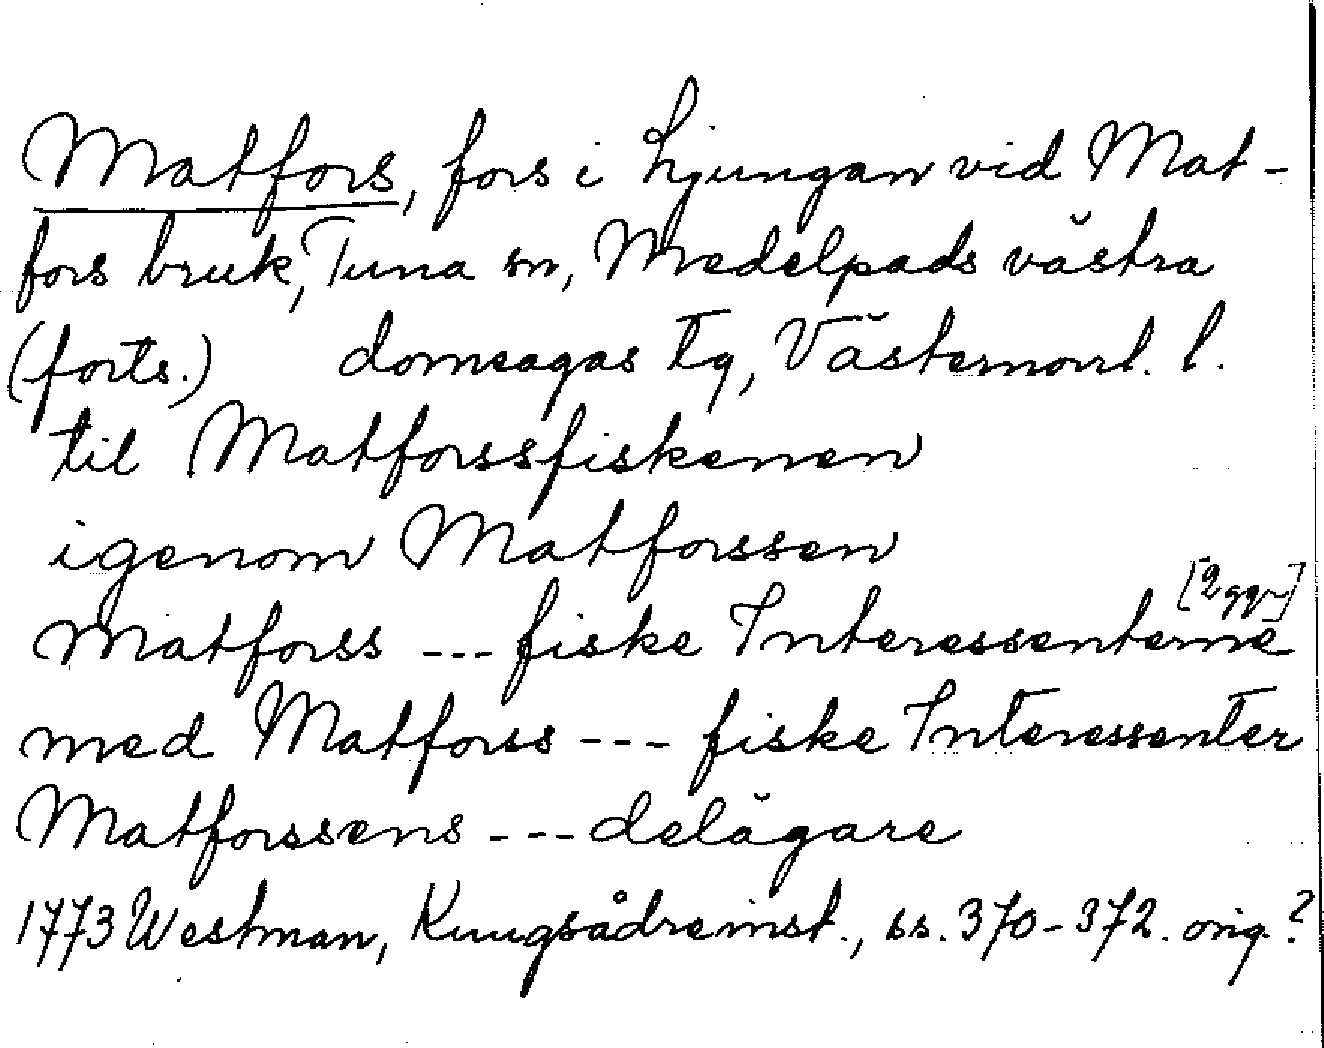 Matfors, fors i Ljungan vid Mat-
fors bruk, Tuna sn, Medelpads västra
(forts.) domsagas tg, Västernorrl. l.
til Matforssfiskenen
igenom Matforssen
[2 ggr]
Matforss --- fiske Interessenterne
med Matforss --- fiske Interessenter
Matforssens --- delägare
1773 Westman, Kungsådreinst., ss. 370-372. orig.?